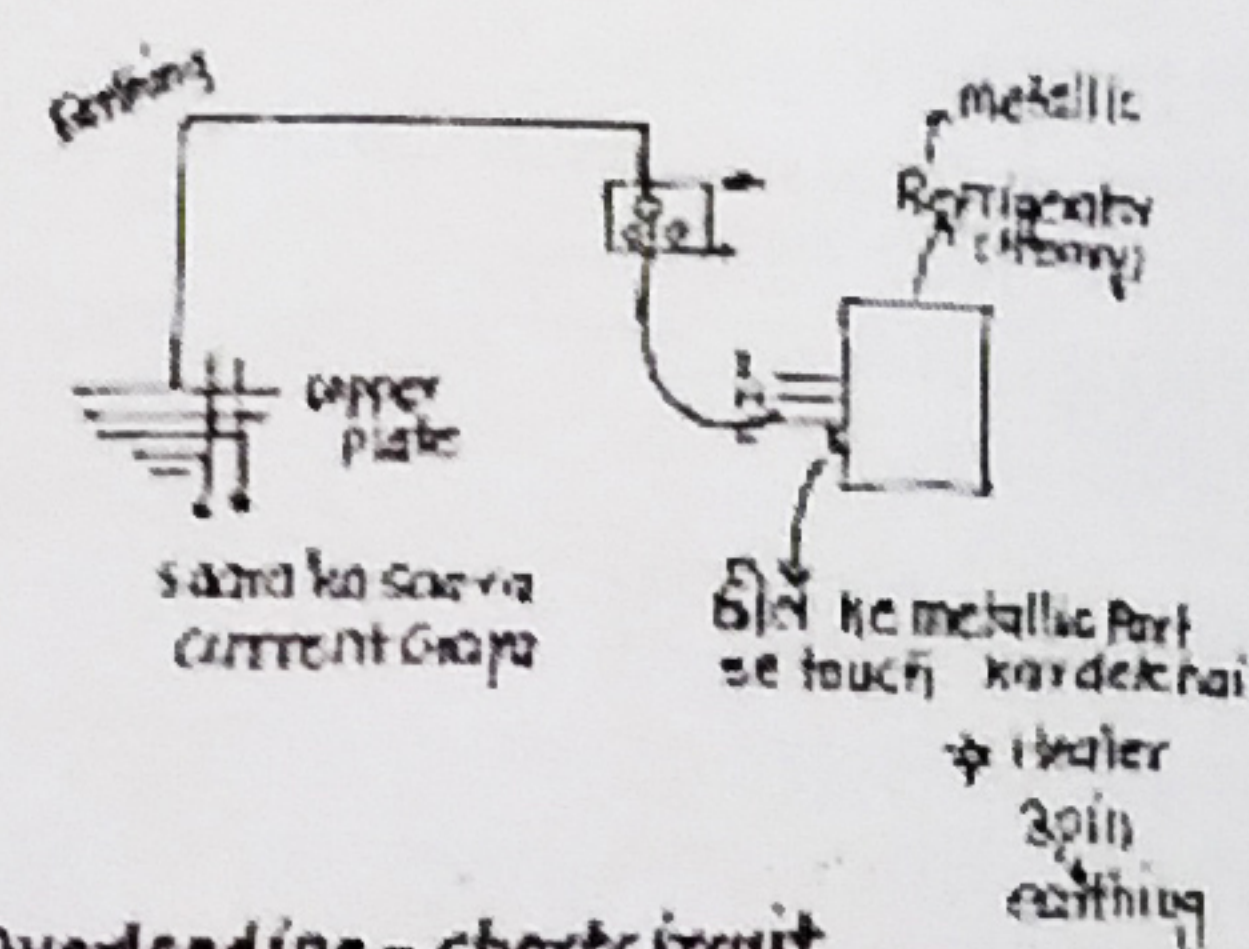 Earthing
metallic
Refrigerator
(Heavy)
copper
plate
saara ka saara
current Gaya
ke metallic Part
se touch kar dete hai
* Heater
3pin
earthing
Overloading - short circuit